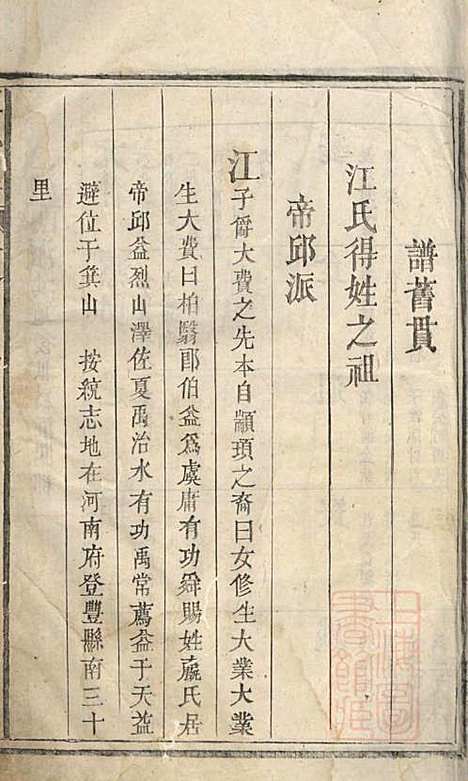 譜舊貫
江氏得姓之祖
帝邱派
江子爵大費之先本自顓頊之裔曰女修生大業大業
生大費曰柏翳即伯益為虞庸有功舜賜姓嬴氏居
帝邱益烈山澤佐夏禹治水有功禹常薦益于天益
避位于箕山 按統志地在河南府登豐縣南三十
里